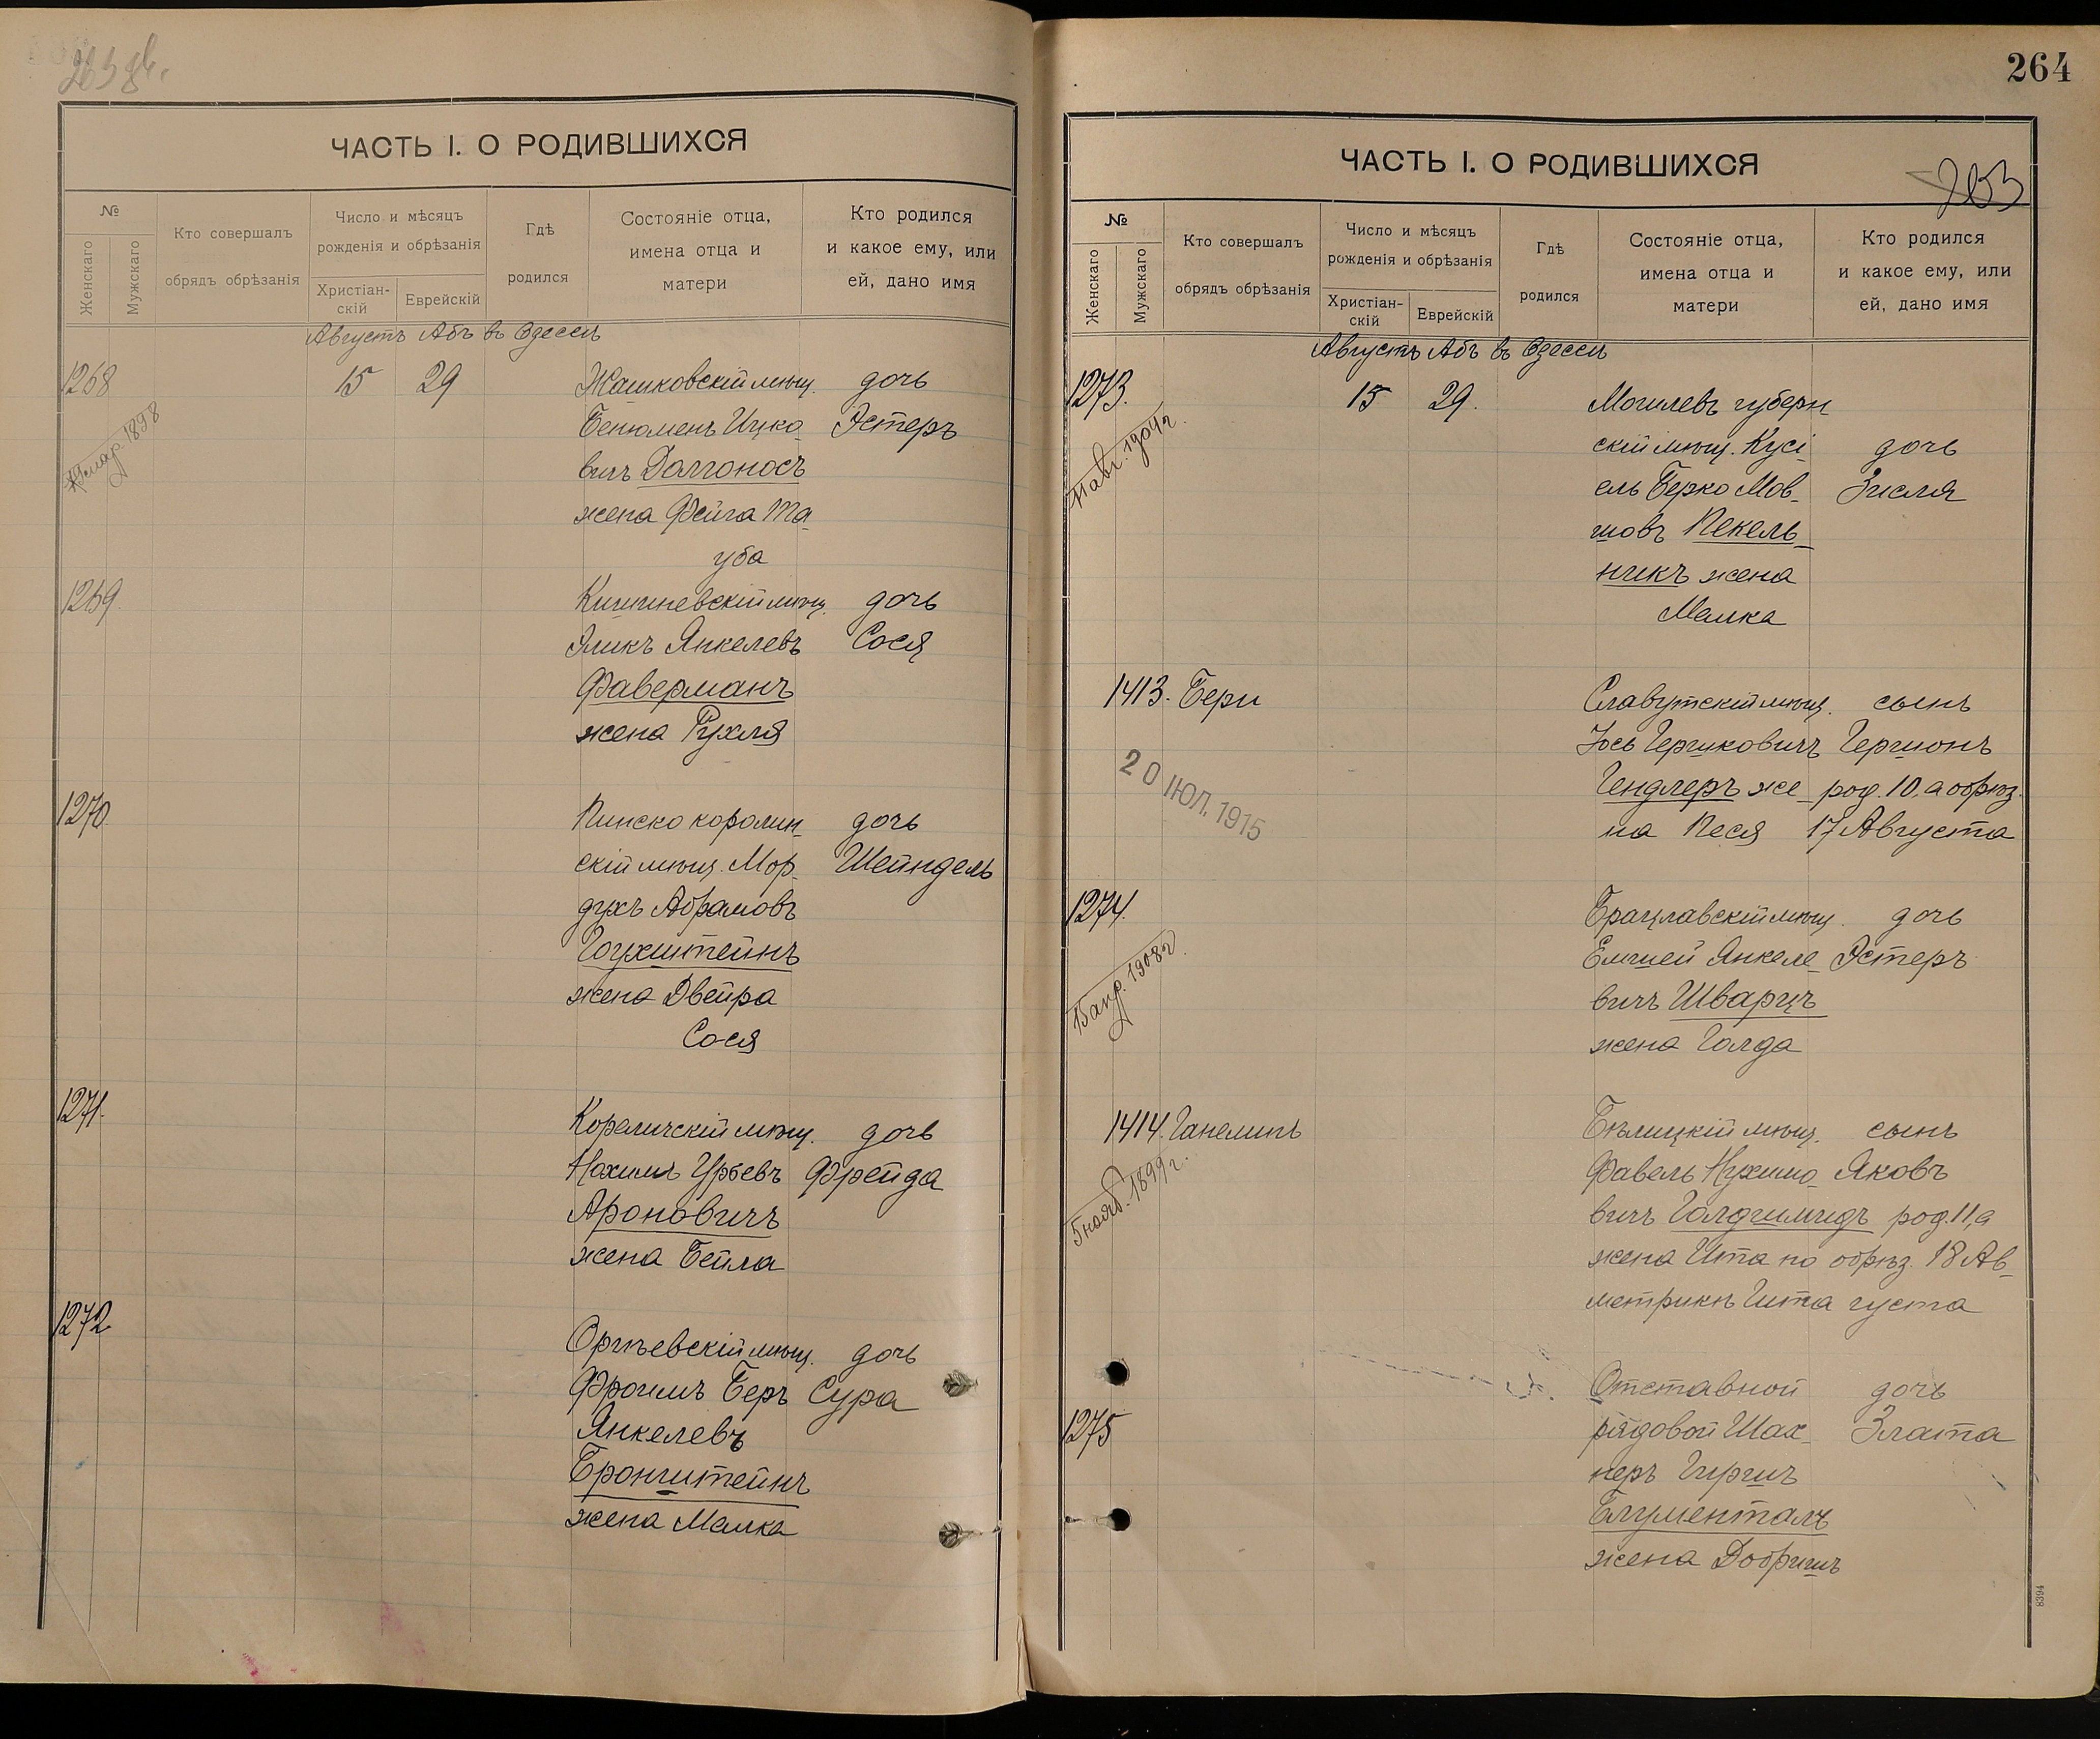 ЧАСТЬ I. О РОДИВШИХСЯ
№
Женскаго
Мужскаго
Кто совершалъ
обрядъ обрѣзанія
Число и мѣсяцъ
рожденія и обрѣзанія
Христіан-
скій
Еврейскій
Гдѣ
родился
Состояніе отца,
имена отца и
матери
Кто родился
и какое ему, или
ей, дано имя
Августъ Абъ въ Одессѣ
1268 15 29 Жашковскій мѣщ. дочь
1898
Бенюменъ Ицко- Эстеръ
вичъ Долгоносъ
жена Фейга Та-
уба
1269. Кишиневскій мѣщ. дочь
Янкелевъ Сося
Фаверманъ
жена Рухля
1270 Пинско каролин- дочь
скій мѣщ. Мор- Шейндель
духъ Абрамовъ
жена Двейра
Сося
1271. Кореличскій мѣщ. дочь
Нохимъ Урьевъ Фрейда
Ароновичъ
жена Бейла
1272 Оргѣевскій мѣщ. дочь
Фроимъ Беръ Сура
Янкелевъ
Бронштейнъ
жена Малка
264
ЧАСТЬ I. О РОДИВШИХСЯ
263
№
Женскаго
Мужскаго
Кто совершалъ
обрядъ обрѣзанія
Число и мѣсяцъ
рожденія и обрѣзанія
Христіан-
скій
Еврейскій
Гдѣ
родился
Состояніе отца,
имена отца и
матери
Кто родился
и какое ему, или
ей, дано имя
Августъ Абъ въ Одессѣ
1273. 15 29. Могилевъ губерн
11 авг. 1904 г.
скій мѣщ. Кусі- дочь
ель Берко Мов- Зисля
шовъ Пекель-
никъ жена
Малка
1413. Бери Славутскій мѣщ. сынъ
Іось Гершковичъ Гершонъ
20 ІЮЛ. 1915
Гендлеръ же- род. 10, а обрѣз.
на Песя 17 Августа
1274. Брацлавскій мѣщ. дочь
15 апр. 1908 г.
Елишей Янкеле- Эстеръ
вичъ Шварцъ
жена Голда
1414. Ганелинъ Бѣлицкій мѣщ. сынъ
5 нояб. 1899 г.
Фавель Нухимо- Яковъ
вичъ Голдшмидъ род. 11, а
жена Ита по обрѣз. 18 Ав-
метрикѣ Гита густа
Отставной дочь
1275 рядовой Шах- Злата
неръ Гиршъ
Блументаль
жена Добришъ
8394